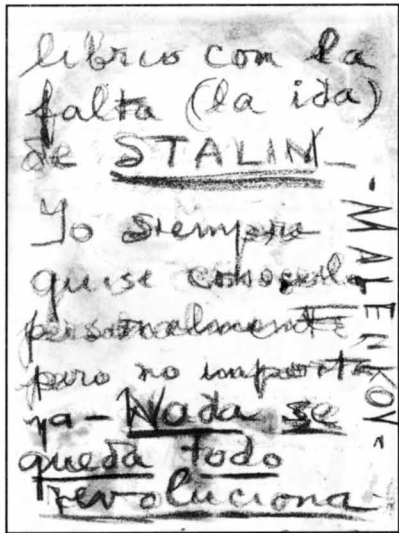 librio con la
falta (la ida)
de STALIN -
Yo siempre
quise conocerla
personalmente
pero no importa
ya - Nada se
queda todo
revoluciona -
- MALENKOV -